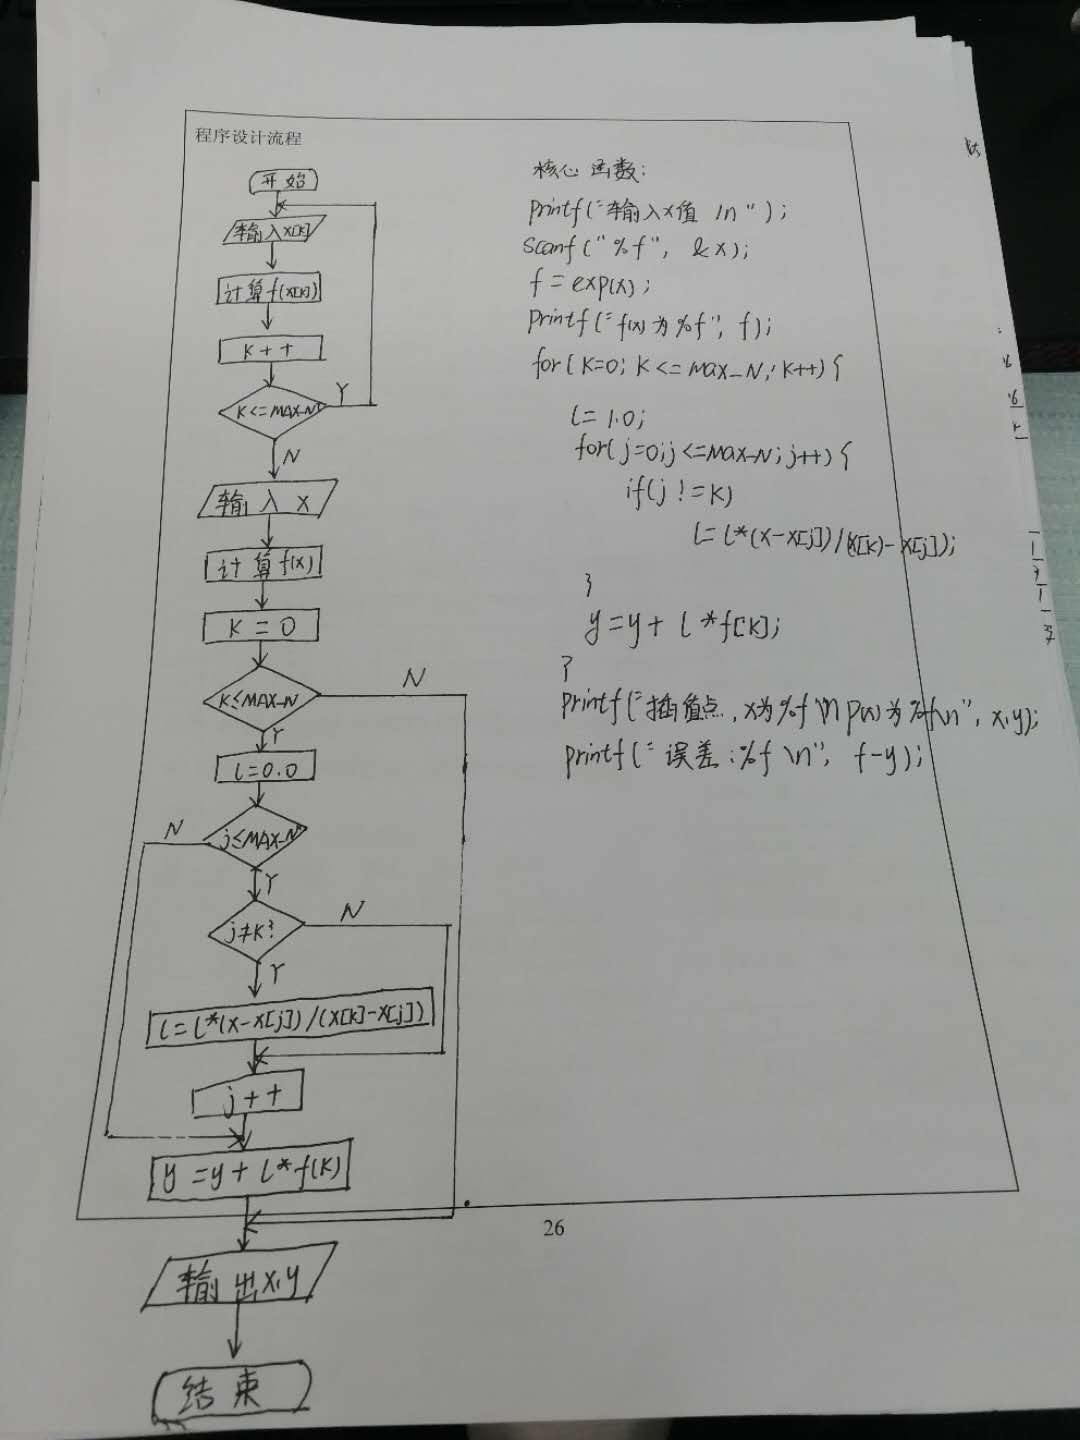 程序设计流程
开始
输入x[k]
计算f(x[k])
k++
k<=MAX-N
Y
N
输入 x
计算f(x)
k=0
k≤MAX-N
N
Y
l=0.0
j≤MAX-N
N
Y
j≠k?
N
Y
l=l*(x-x[j])/(x[k]-x[j])
j++
y=y+l*f(k)
输出x,y
结束
核心函数:
printf("输入x值 /n");
scanf("%f", &x);
f=exp(x);
printf("f(x)为%f", f);
for(k=0; k<=max-N; k++){
l=1.0;
for(j=0;j<=max-N;j++){
if(j!=k)
l=l*(x-x[j])/(x[k)-x[j]);
}
y=y+l*f[k];
}
printf("插值点,x为%f\n p(x)为%f\n",x,y);
printf("误差:%f \n", f-y);
26